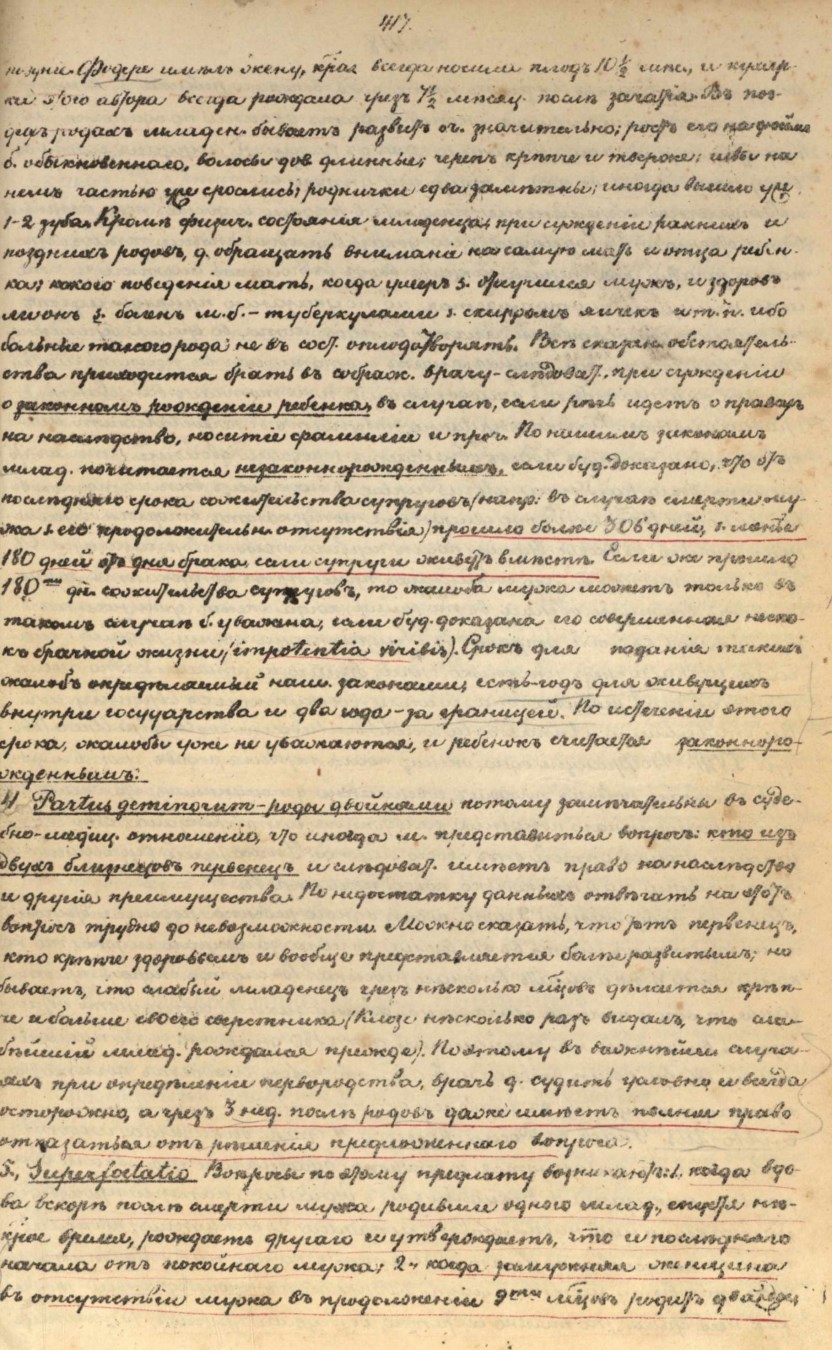 417.
Фодере имѣлъ жену, кᷓрая всегда носила плодъ 10 ½ мѣс., и
автора всегда рождала чрезъ 7½ мѣсяц. послѣ зачатія. Въ поз-
днихъ родахъ младен. бываетъ развитъ оч. значительно; ростъ его
б. обыкновеннаго, волосы длинные; черепъ крѣпче и тверже; швы на
немъ частью уже срослись; роднички едва замѣтны; иногда бывало уже
1-2 зуба. Кромѣ физич. состоянія младенца, при сужденіи ранныхъ и
позднихъ родовъ, д. обращать вниманіе на самую мать и отца ребен-
ка; какого поведенія мать, когда умеръ s. отлучился мужъ, и здоровъ
ли онъ s. боленъ м. б. – туберкулами s. скирромъ яичекъ и т. п. ибо
больные такого рода не въ сост. оплодотворять. Всѣ сказан. обстоятель-
ства приходится брать въ соображ. врачу-слѣдоват. при сужденіи
о законномъ рожденіи ребенка, въ случаѣ, если рѣчь идетъ о правахъ
на наслѣдство, носитіе фамиліи и проч. По нашимъ законамъ
млад. почитается незаконнорожденнымъ, если буд. доказано, что отъ
послѣдняго срока сожительства супруговъ (напр: въ случаѣ смерти му-
жа s. его продолжительн. отсутствія) прошло болѣе 306 дней, s. менѣе
180 дней отъ дня брака, если супруги живутъ вмѣстѣ. Если же прошло
180 дн. сожительства супруговъ, то жалоба мужа можетъ только въ
такомъ случаѣ б. уважена, если буд. доказана его совершенная неспо-
къ брачной жизни, (impotentia virilis). Срокъ для поданія такихъ
жалобъ опредѣляемый наш. законами, есть – годъ для живущихъ
внутри государства и два года – за границей. По истеченіи этого
срока, жалобы уже не уважаются, и ребенокъ считается законноро-
жденнымъ.
4, Partus geminorum – роды двойнями потому замѣчательны въ суде-
бно-медиц. отношеніи, что иногда м. представиться вопросъ: кто изъ
двухъ близнецовъ первенецъ и слѣдоват. имѣетъ право на наслѣдство
и другія преимущества. По недостатку данныхъ отвѣчать на этотъ
вопросъ трудно до невозможности. Можно сказать, что тотъ первенецъ,
кто крѣпче здоровьемъ и вообще представляется болѣе развитымъ; но
бываетъ, что слабый младенецъ чрезъ нѣсколько мᷓцовъ дѣлается крѣп-
че и больше своего сверстника (Клозе нѣсколько разъ видалъ, что сла-
бѣйшій млад. рождался прежде). Поэтому въ важнѣйш. случа-
яхъ при опредѣленіи первородства, врачъ д. судить условно и всегда
осторожно, а чрезъ 3 нед. послѣ родовъ даже имѣетъ полное право
отказаться отъ рѣшенія предложеннаго вопроса.
5, Superfoetatio Вопросы по этому предмету возникаютъ: 1. когда вдо-
ва вскорѣ послѣ смерти мужа родивши одного млад., спустя нѣ-
кᷓрое время, рождаетъ другаго и утверждаетъ, что и послѣдняго
начала отъ покойнаго мужа; 2 – когда замужняя женщина
въ отсутствіи мужа въ продолженіи 9 мᷓцовъ родитъ дважды;